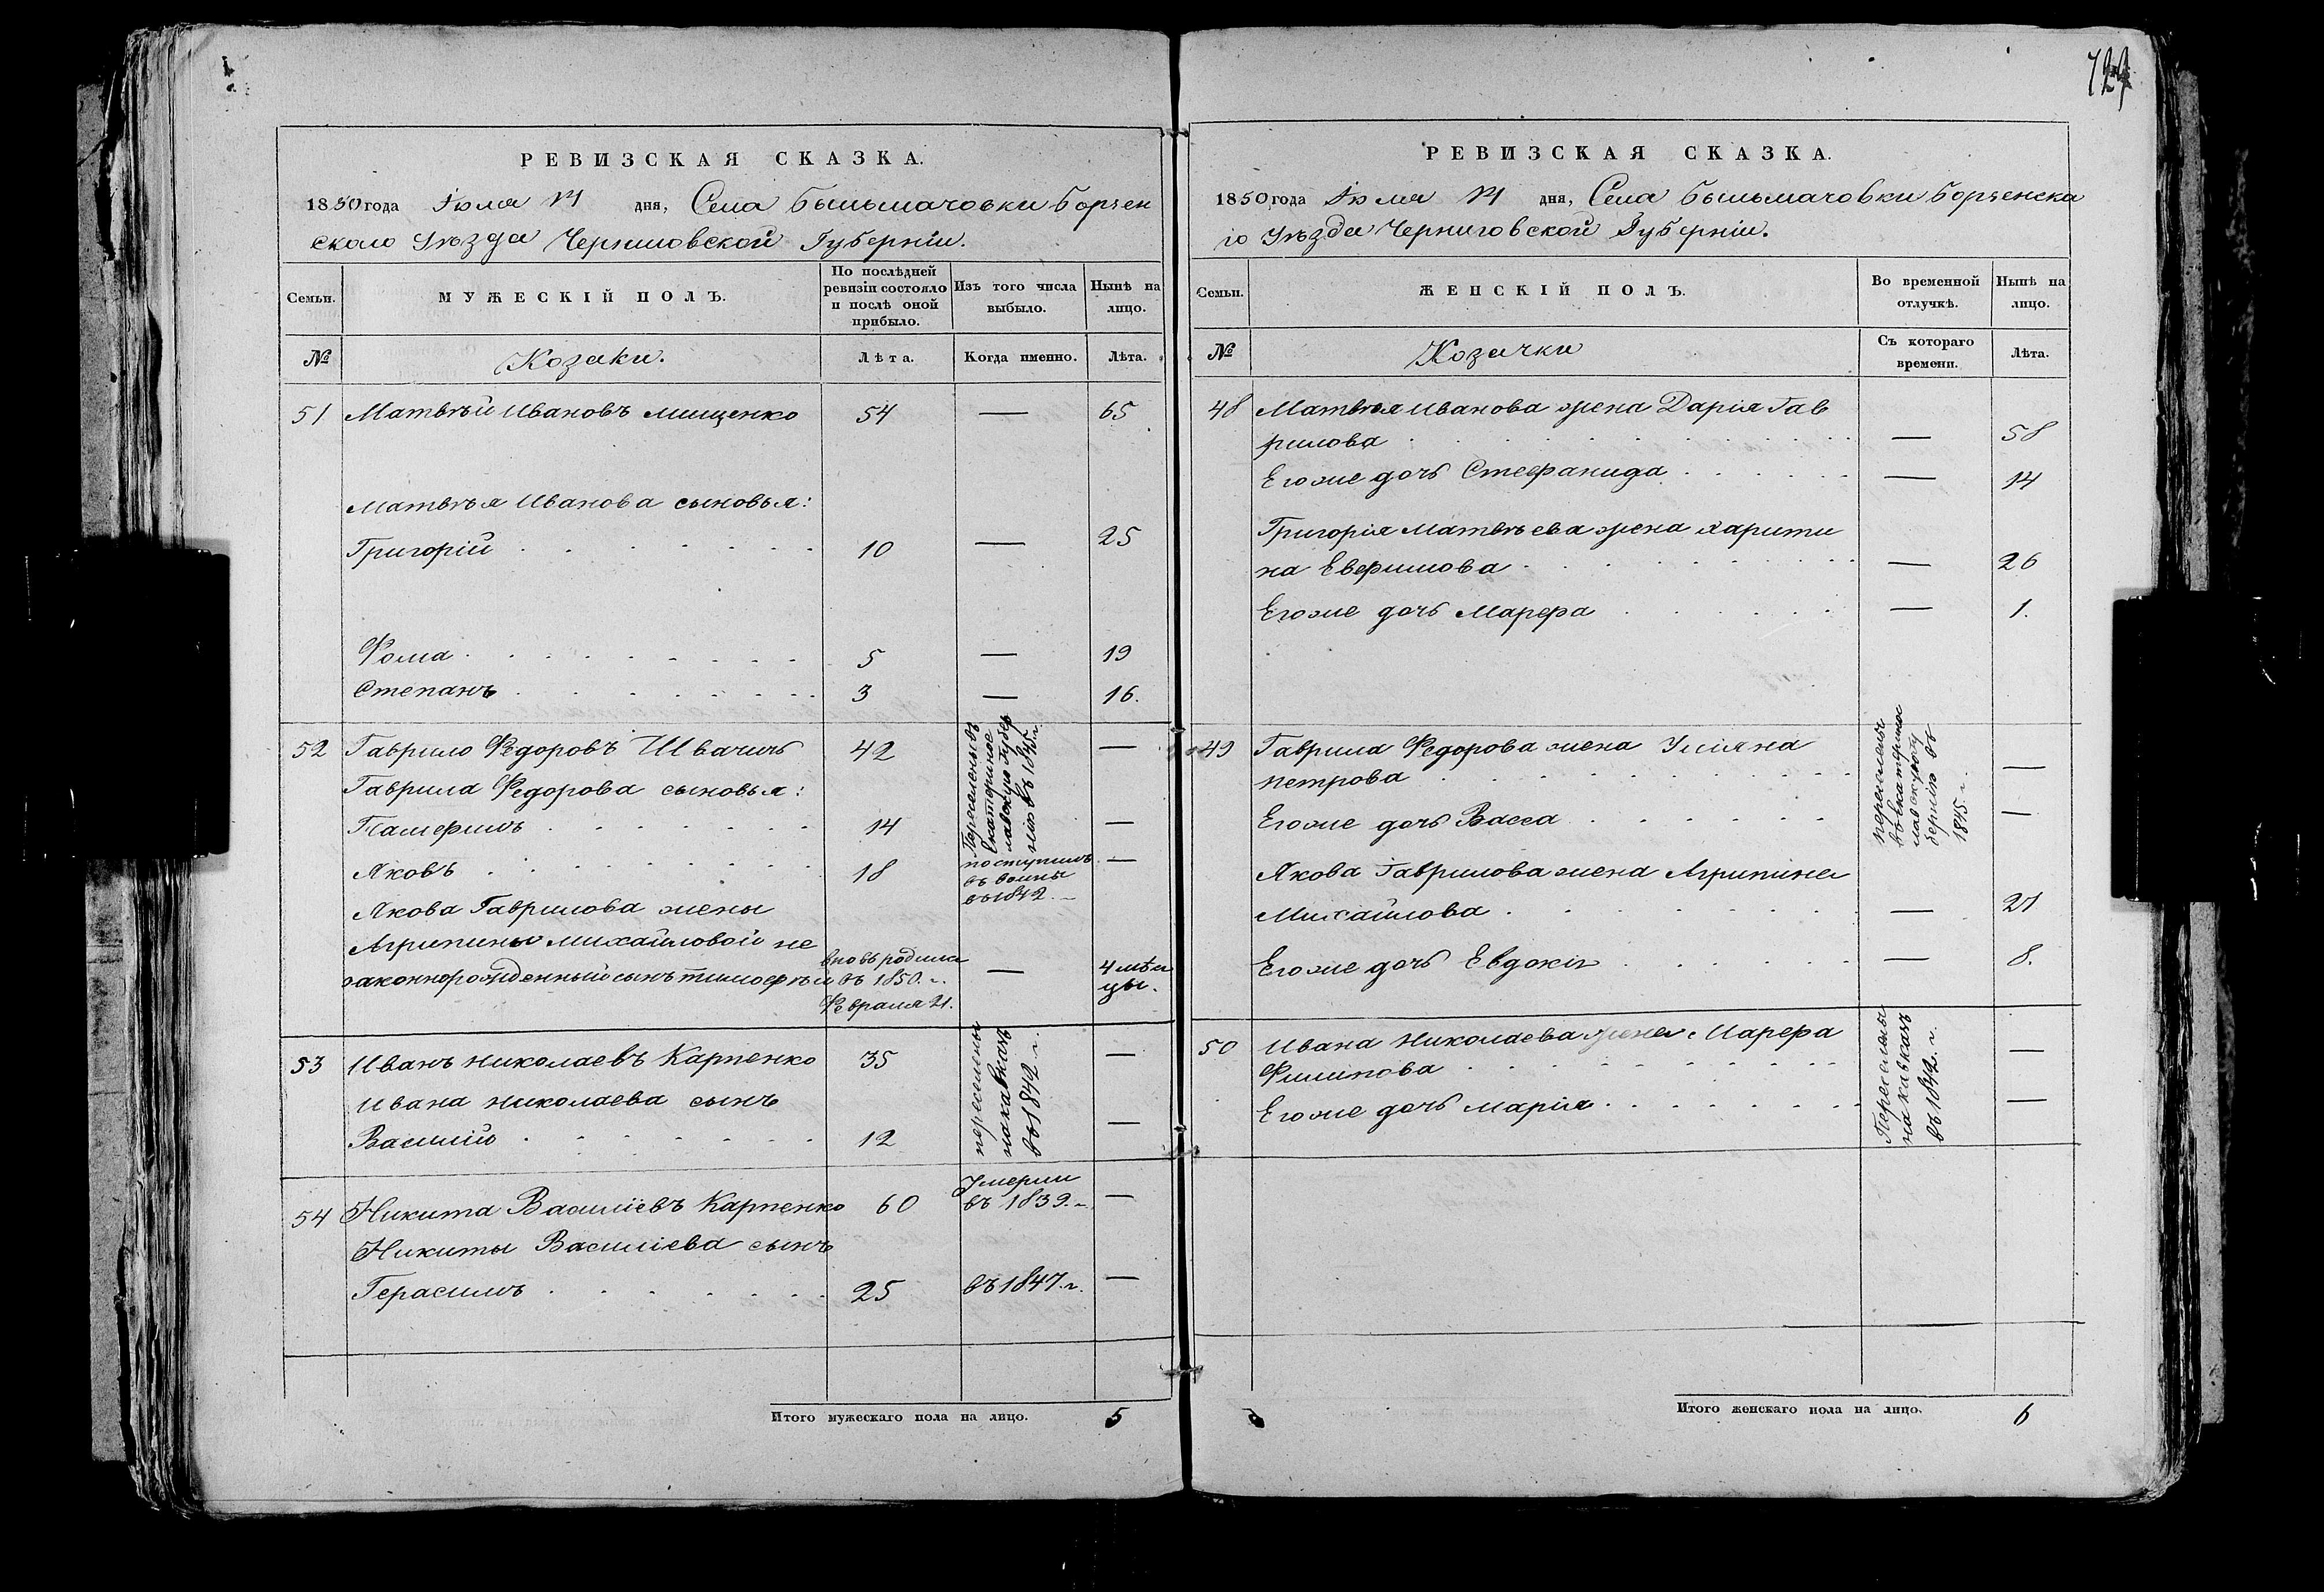 729
РЕВИЗСКАЯ СКАЗКА.
1850 года Іюля 14 дня, Села Бильмачовки Борзен
скаго Уѣзда Черниговской Губерніи.
Семьи.
МУЖЕСКІЙ ПОЛЪ.
По послѣдней ревизіи состояло и послѣ оной прибыло.
Изъ того числа выбыло.
Нынѣ на лицо.
№ Козаки. Лѣта. Когда именно. Лѣта.
51 Матвѣй Ивановъ Мищенко 54 — 65
Матвѣя Иванова сыновья:
Григорій 10 — 25
Фома 5 — 19
Степанъ 3 — 16.
52 Гаврило Федоровъ Швачичъ 42 —
Гаврила Федорова сыновья:
Памфилъ 14 —
Переселены въ
Екатеринос
лавскую Губер
нію въ 1845 г.
Яковъ 18 поступилъ —
въ воины
въ 1842.
Якова Гаврилова жены
Агрипины Михайловой не
законнорожденный сынъ Тимофѣй
вновь родился
въ 1850. г.
Февраля 21.
— 4 мѣся
цы.
53 Иванъ Николаевъ Карпенко 35 —
Ивана Николаева сынъ
Василій 12 —
переселены
на кавказъ
въ 1842 г.
54 Никита Василіевъ Карпенко 60 Умерли —
въ 1839. г.
Никиты Василіева сынъ
Герасимъ 25 въ 1847. г. —
Итого мужескаго пола на лицо. 5
РЕВИЗСКАЯ СКАЗКА.
1850 года Іюля 14 дня, Села Бильмачовки Борзенска
го Уѣзда Черниговской Губерніи.
Семьи.
ЖЕНСКІЙ ПОЛЪ.
Во временной отлучкѣ.
Нынѣ на лицо.
№ Козачки Съ котораго времени. Лѣта.
48 Матвѣя Иванова жена Дарія Гав
рилова — 58
Егоже дочь Стефанида — 14
Григорія Матвѣева жена Харити
на Евфимова — 26
Егоже дочь Марфа — 1.
49 Гаврила Федорова жена Уліяна
Петрова —
Егоже дочь Васса —
переселены
въ Екатеринос
лавскую гу
бернію въ
1845. г.
Якова Гаврилова жена Агрипина
Михайлова — 27
Егоже дочь Евдокія — 8.
50 Ивана Николаева жена Марфа
Филипова —
Егоже дочь Марія —
Переселены
на кавказъ
въ 1842. г.
Итого женскаго пола на лицо. 6